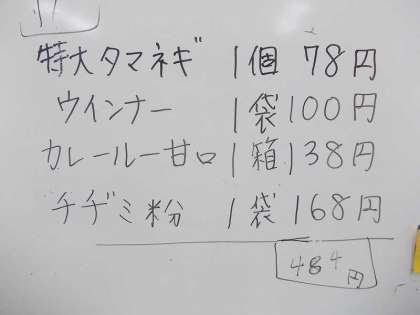 特大タマネギ 1個 78円
ウインナー 1袋 100円
カレールー甘口 1箱 138円
チヂミ粉 1袋 168円
484円